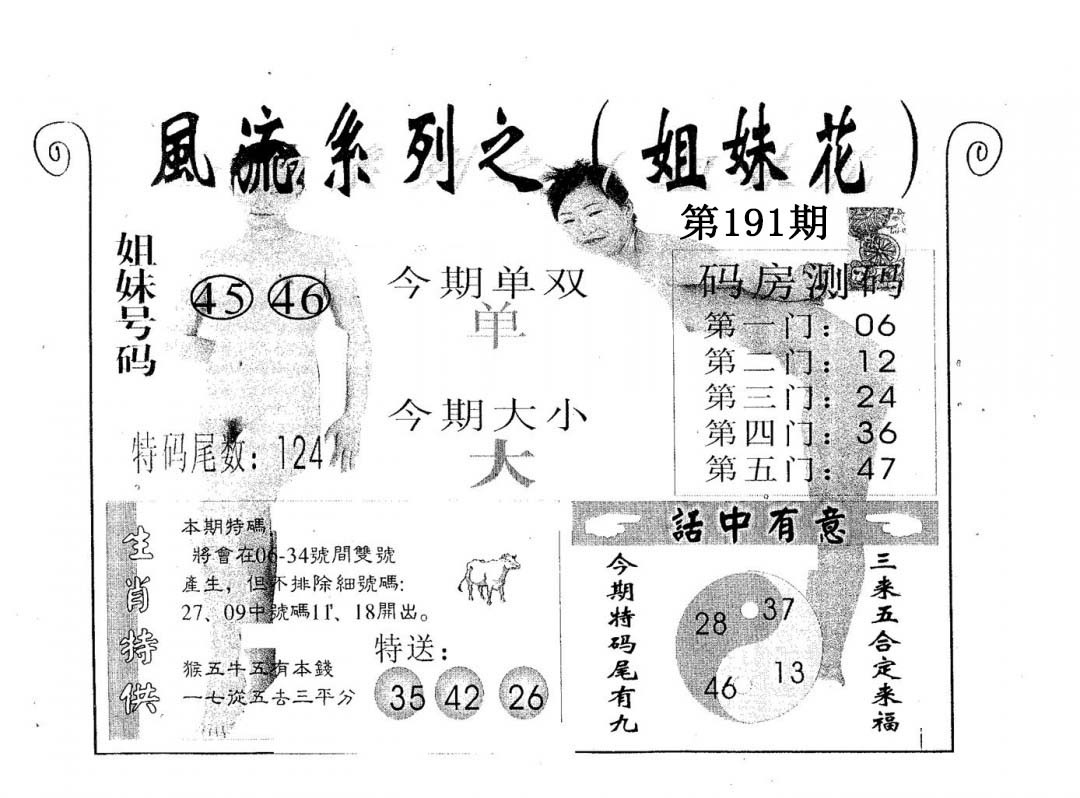 風流系列之（姐妹花）
第191期
姐妹号码
45 46
今期单双
单
今期大小
大
特码尾数：124
码房测码
第一门：06
第二门：12
第三门：24
第四门：36
第五门：47
生肖特供
本期特碼
將會在06-34號間雙號
產生，但不排除細號碼:
27、09中號碼11、18開出。
猴五牛五有本錢
一七從五去三平分
特送：
35 42 26
話中有意
今期特码尾有九
28 37
46 13
三来五合定来福